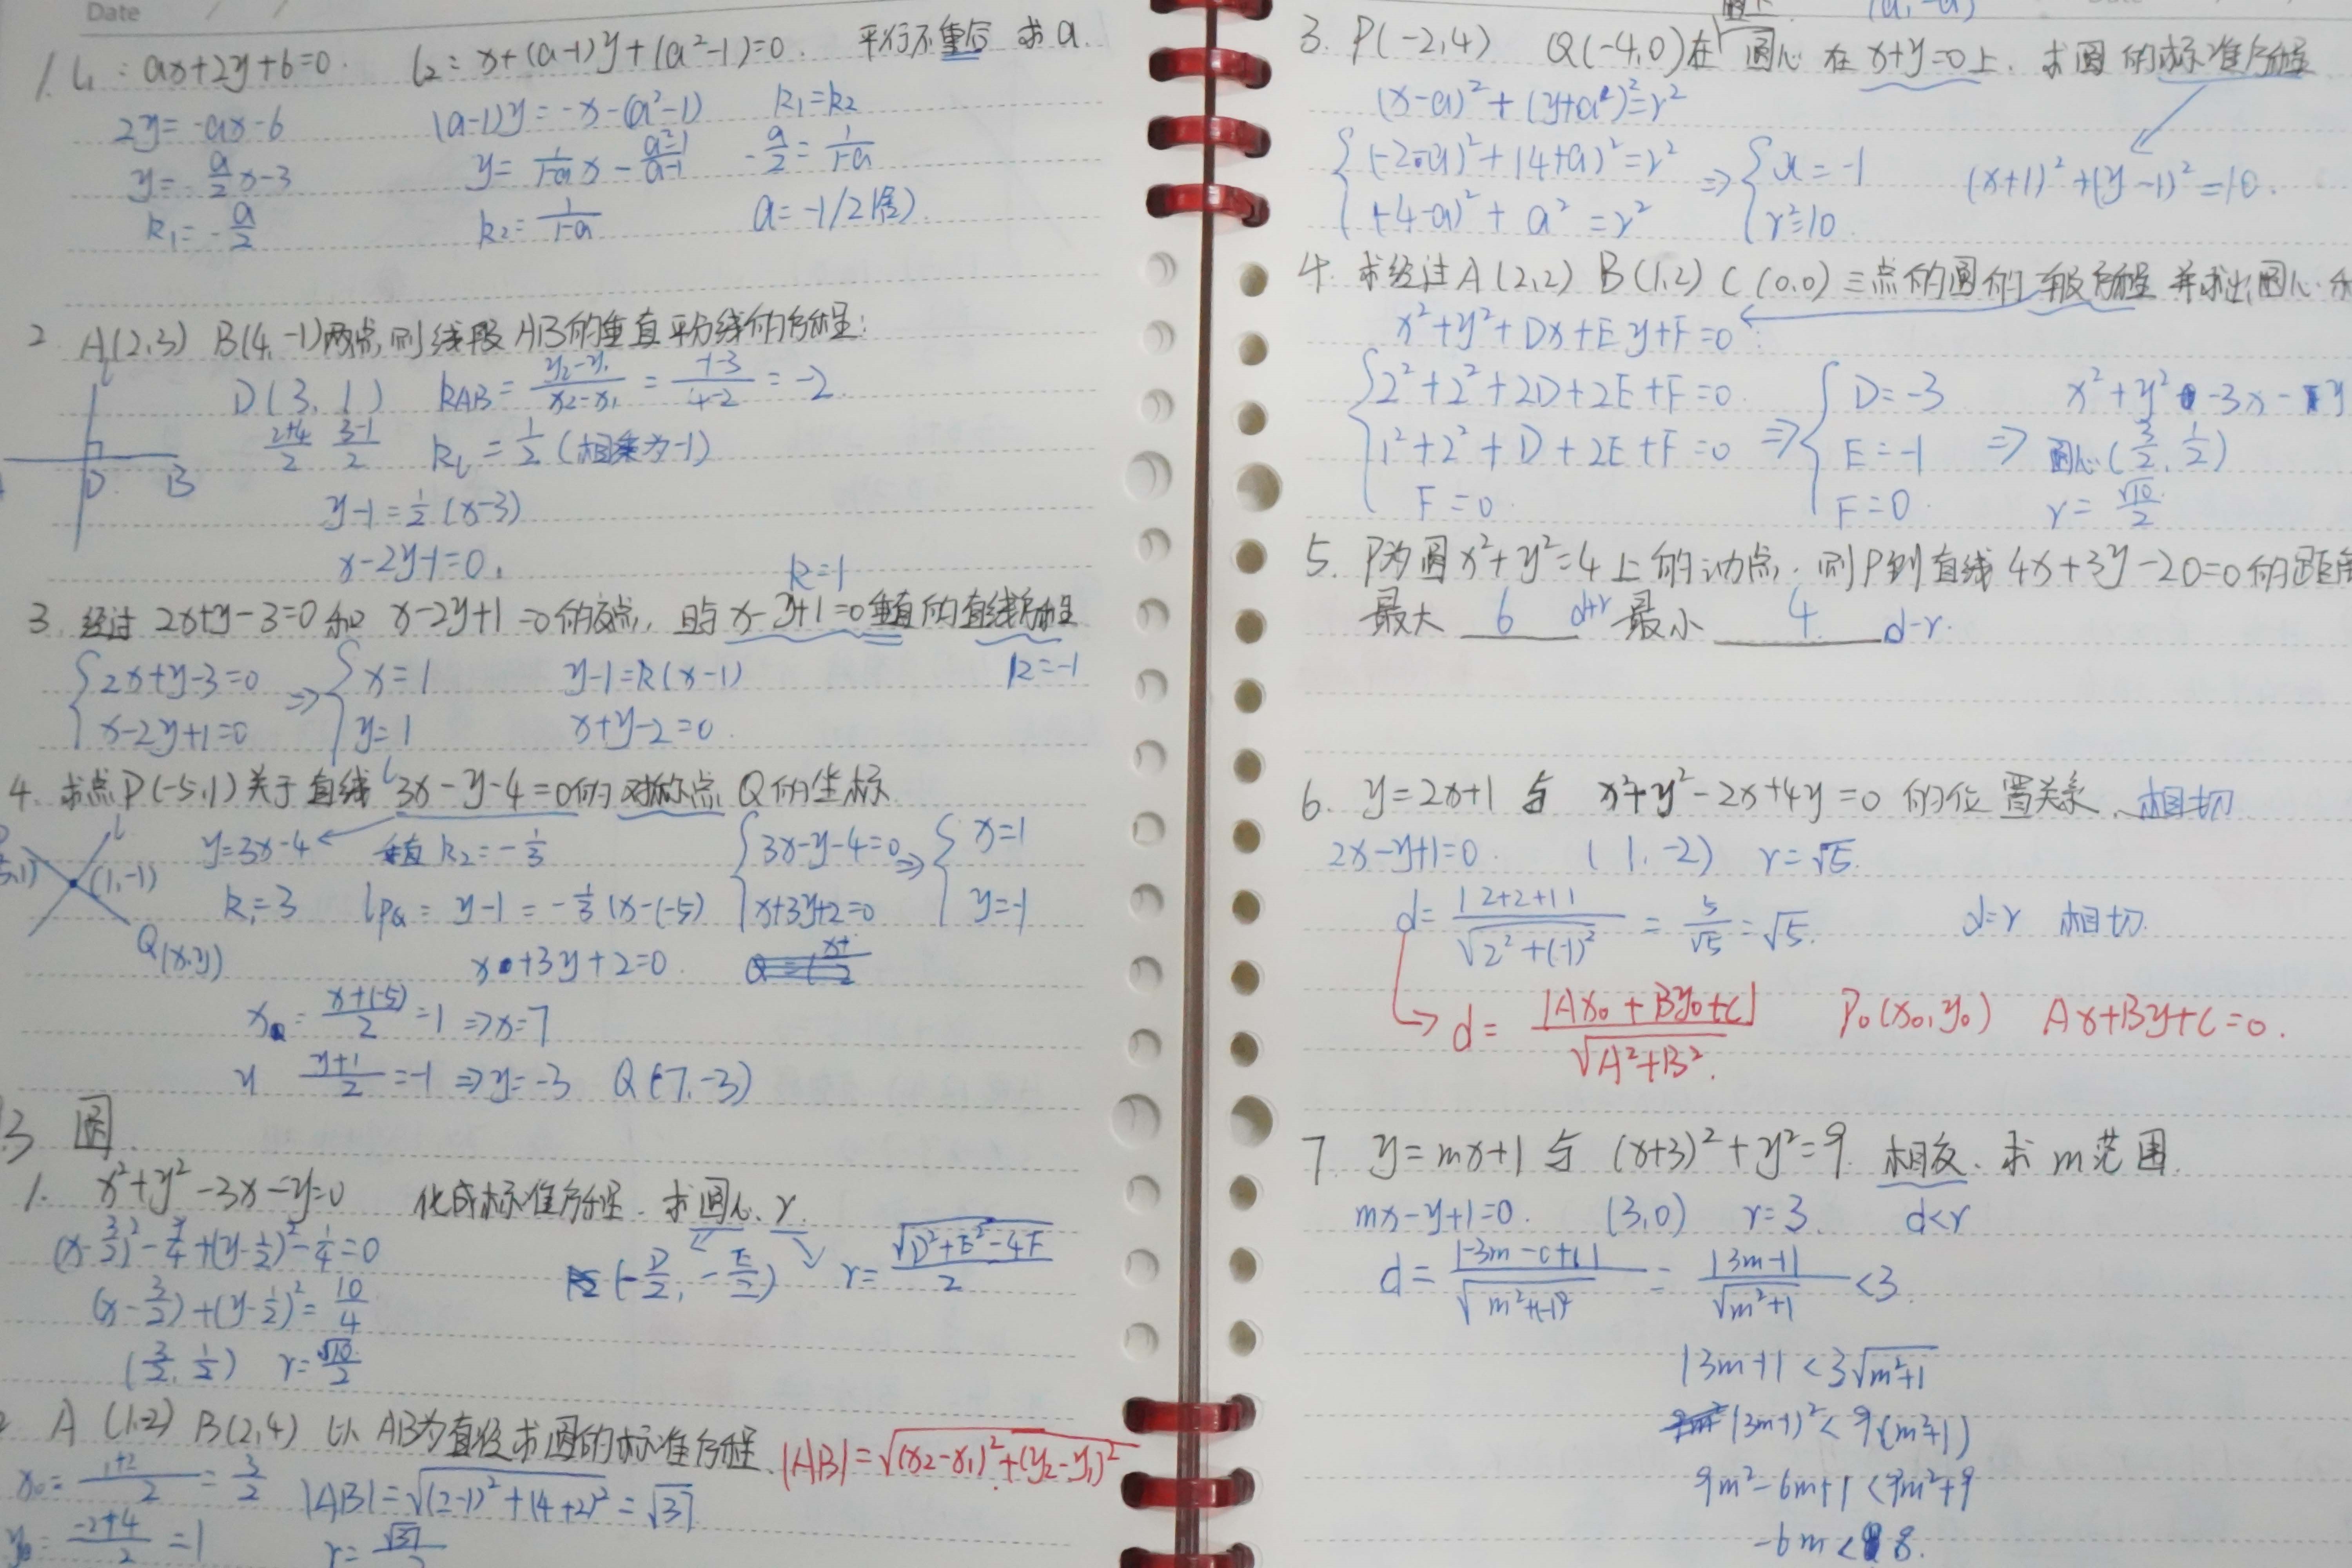 Date
1. l₁: ax+2y+6=0. l₂: x+(a-1)y+(a²-1)=0. 平行不重合 求a.
2y=-ax-6 (a-1)y=-x-(a²-1) k₁=k₂
y=-a/2 x-3 y=1/(1-a) x-(a²-1)/(a-1) -a/2=1/(1-a)
k₁=-a/2 k₂=1/(1-a) a=-1/2(舍)
2 A(2,3) B(4,-1)两点,则线段AB的垂直平分线的方程:
l
D(3,1) k_AB=(y₂-y₁)/(x₂-x₁)=(-1-3)/(4-2)=-2.
(2+4)/2 (3-1)/2 k_l=1/2(相乘为-1)
D B
y-1=1/2(x-3)
x-2y-1=0.
k=1
3 经过2x+y-3=0和 x-2y+1=0的交点,且与x-y+1=0垂直的直线方程
{2x+y-3=0 ⇒{x=1 y-1=k(x-1) k=-1
x-2y+1=0 y=1 x+y-2=0.
4. 求点P(-5,1)关于直线l 3x-y-4=0的对称点Q的坐标
l y=3x-4 垂直k₂=-1/3 {3x-y-4=0 ⇒{x=1
(1,-1) k₁=3 l_PQ= y-1=-1/3(x-(-5) x+3y+2=0 y=-1
Q(x,y) x+3y+2=0.
x=(x+(-5))/2=1⇒x=7
y (y+1)/2=-1⇒y=-3 Q(7,-3)
3 圆
1. x²+y²-3x-y=0 化成标准方程.求圆心、r
(x-3/2)²-9/4+(y-1/2)²-1/4=0 (-D/2,-E/2) r=√(D²+E²-4F)/2
(x-3/2)+(y-1/2)²=10/4
(3/2,1/2) r=√10/2
A(1,-2) B(2,4) 以AB为直径求圆的标准方程. |AB|=√((x₂-x₁)²+(y₂-y₁)²)
x₀=(1+2)/2=3/2 |AB|=√((2-1)²+(4+2)²)=√37
y₀=(-2+4)/2=1 r=√37/2
(a,-a)
3. P(-2,4) Q(-4,0)在 圆心在x+y=0上.求圆的标准方程
(x-a)²+(y+a)²=r²
{(-2-a)²+(4+a)²=r² ⇒{a=-1 (x+1)²+(y-1)²=10.
(-4-a)²+a²=r² r²=10
4. 求经过A(2,2) B(1,2) C(0,0)三点的圆的一般方程 并求出圆心
x²+y²+Dx+Ey+F=0
{2²+2²+2D+2E+F=0 ⇒{D=-3 x²+y²-3x-y
1²+2²+D+2E+F=0 E=-1 ⇒ 圆心(3/2,1/2)
F=0. F=0. r=√10/2
5. P为圆x²+y²=4上的动点.则P到直线4x+3y-20=0的距离
最大 6 d+r 最小 4 d-r.
6. y=2x+1与 x²+y²-2x+4y=0的位置关系、相切
2x-y+1=0. (1,-2) r=√5.
d=|2+2+1|/√(2²+(-1)²)=5/√5=√5. d=r 相切.
d=|Ax₀+By₀+C|/√(A²+B²). P₀(x₀,y₀) Ax+By+C=0.
7 y=mx+1与 (x+3)²+y²=9.相交.求m范围.
mx-y+1=0. (3,0) r=3. d<r
d=|-3m-0+1|/√(m²+(-1)²)=|3m-1|/√(m²+1)<3.
|3m-1|<3√(m²+1)
(3m-1)²<9(m²+1)
9m²-6m+1<9m²+9
-6m<8.